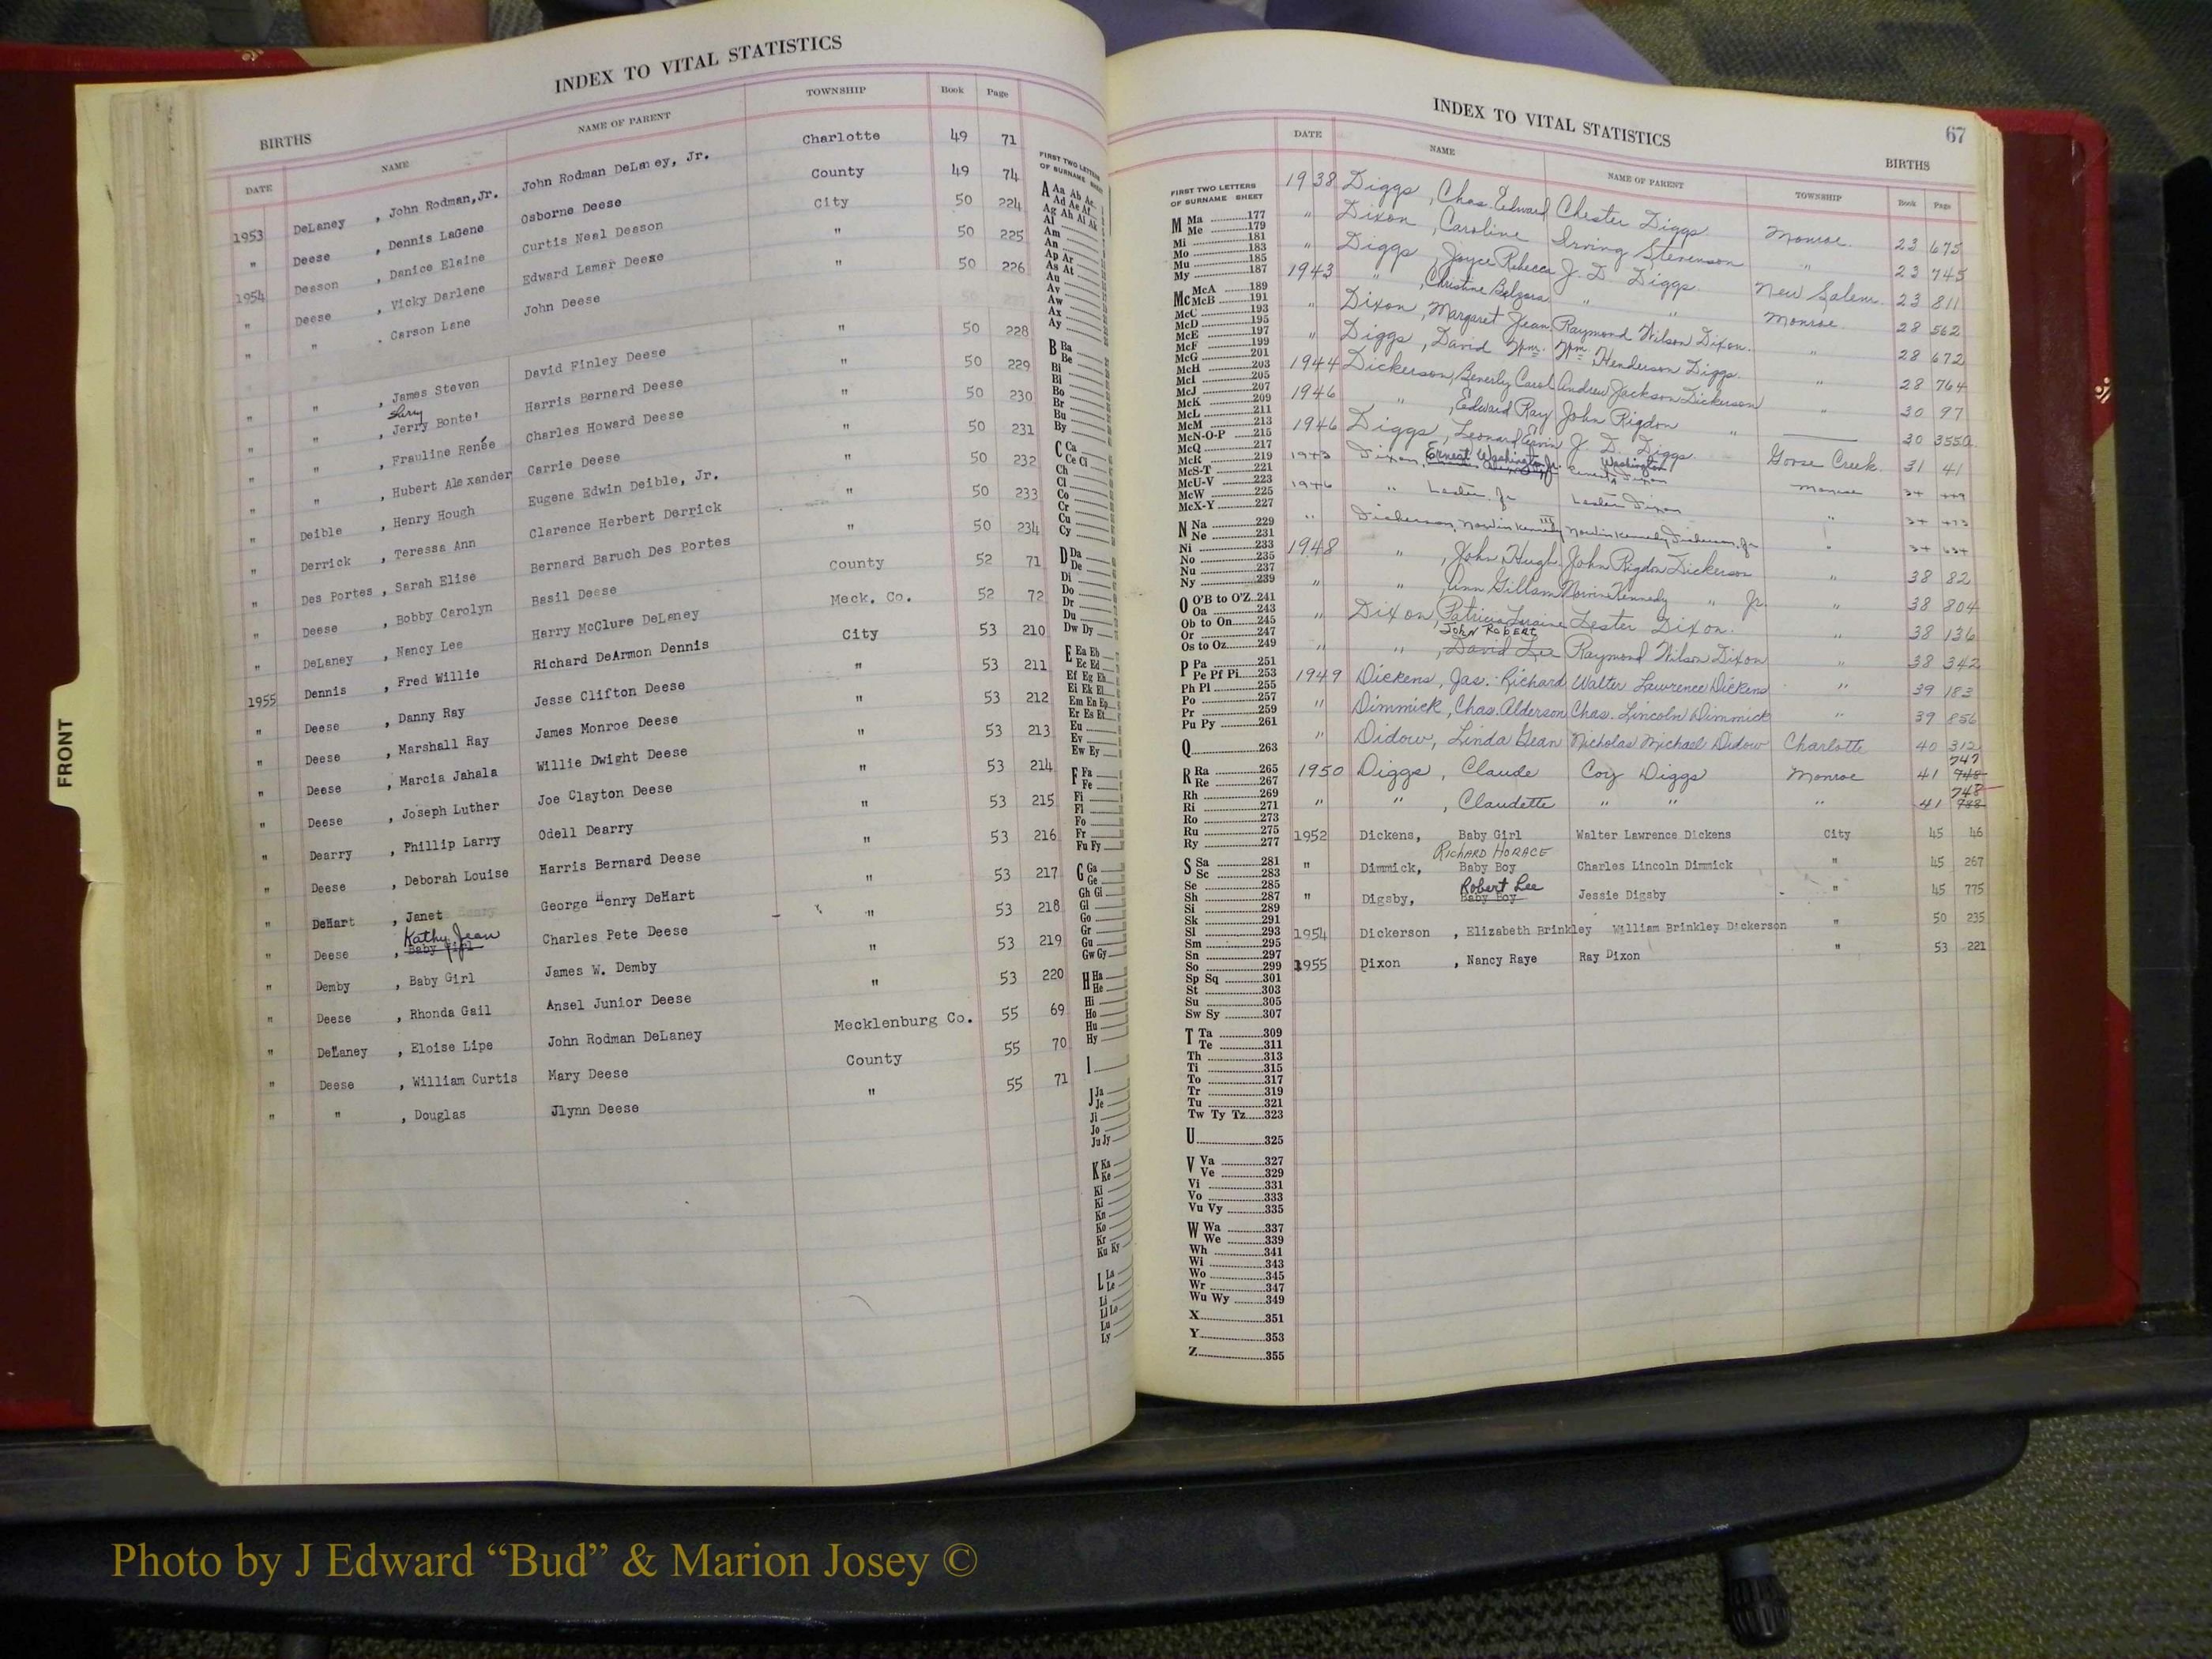 INDEX TO VITAL STATISTICS
BIRTHS
DATE NAME NAME OF PARENT TOWNSHIP Book Page
1953 DeLaney , John Rodman, Jr. John Rodman DeLaney, Jr. Charlotte 49 71
" Deese , Dennis LaGene Osborne Deese County 49 74
1954 Deason , Danice Elaine Curtis Neal Deason City 50 224
" Deese , Vicky Darlene Edward Lamar Deese " 50 225
" " , Carson Lane John Deese " 50 226
" " , James Steven David Finley Deese " 50 228
" " , Jerry Bonte' Harris Bernard Deese " 50 229
" " , Frauline Renée Charles Howard Deese " 50 230
" " , Hubert Alexander Carrie Deese " 50 231
" Deible , Henry Hough Eugene Edwin Deible, Jr. " 50 232
" Derrick , Teressa Ann Clarence Herbert Derrick " 50 233
" Des Portes , Sarah Elise Bernard Baruch Des Portes " 50 234
" Deese , Bobby Carolyn Basil Deese County 52 71
" DeLaney , Nancy Lee Harry McClure DeLaney Meck. Co. 52 72
1955 Dennis , Fred Willie Richard DeArmon Dennis City 53 210
" Deese , Danny Ray Jesse Clifton Deese " 53 211
" Deese , Marshall Ray James Monroe Deese " 53 212
" Deese , Marcia Jahala Willie Dwight Deese " 53 213
" Deese , Joseph Luther Joe Clayton Deese " 53 214
" Dearry , Phillip Larry Odell Dearry " 53 215
" Deese , Deborah Louise Harris Bernard Deese " 53 216
" DeHart , Janet George Henry DeHart " 53 217
Kathy Jean
" Deese , Baby Girl Charles Pete Deese " 53 218
" Demby , Baby Girl James W. Demby " 53 219
" Deese , Rhonda Gail Ansel Junior Deese " 53 220
" DeLaney , Eloise Lipe John Rodman DeLaney Mecklenburg Co. 55 69
" Deese , William Curtis Mary Deese County 55 70
" " , Douglas Jlynn Deese " 55 71
FRONT
FIRST TWO LETTERS
OF SURNAME SHEET
A Aa Ab Ac
Ad Ae Af
Ag Ah Ai Ak
Al
Am
An
Ap Ar
As At
Au
Av
Aw
Ax
Ay
B Ba
Be
Bi
Bl
Bo
Br
Bu
By
C Ca
Ce Ci
Ch
Cl
Co
Cr
Cu
Cy
D Da
De
Di
Do
Dr
Du
Dw Dy
E Ea Eb
Ec Ed
Ef Eg Eh
Ei Ek El
Em En Ep
Er Es Et
Eu
Ev
Ew Ey
F Fa
Fe
Fi
Fl
Fo
Fr
Fu Fy
G Ga
Ge
Gh Gi
Gl
Go
Gr
Gu
Gw Gy
H Ha
He
Hi
Ho
Hu
Hy
I
J Ja
Je
Ji
Jo
Ju Jy
K Ka
Ke
Ki
Kl
Kn
Ko
Kr
Ku Ky
L La
Le
Li
Ll Lo
Lu
Ly
INDEX TO VITAL STATISTICS
67
BIRTHS
DATE NAME NAME OF PARENT TOWNSHIP Book Page
1938 Diggs , Chas. Edward Chester Diggs Monroe 23 675
" Dixon , Caroline Irving Stevenson " 23 745
" Diggs , Joyce Rebecca J. D. Diggs New Salem 23 811
1943 " , Christine " " Monroe 28 562
" Dixon , Margaret Jean Raymond Wilson Dixon " 28 672
" Diggs , David Wm. Wm. Henderson Diggs " 28 764
1944 Dickerson, Beverly Carol Andrew Jackson Dickerson " 30 97
1946 " , Edward Ray John Rigdon " 30 355a
1946 Diggs , Leonard Ervin J. D. Diggs Goose Creek 31 41
1943 Dixon, Ernest Washington Jr. Ernest Washington Dixon Monroe 34
1946 " Lester, Jr Lester Dixon " 34
" Dickerson, Norvin Kennedy III Norvin Kennedy Dickerson, Jr " 34 634
1948 " , John Hugh John Rigdon Dickerson " 38 82
" " , Ann Gillam Norvin Kennedy " Jr. " 38 804
" Dixon , Patricia Loraine Lester Dixon " 38 136
JOHN ROBERT
" " , David Lee Raymond Wilson Dixon " 38 342
1949 Dickens, Jas. Richard Walter Lawrence Dickens " 39 183
" Dimmick, Chas. Alderson Chas. Lincoln Dimmick " 39 856
" Didow, Linda Jean Nicholas Michael Didow Charlotte 40 312
747
1950 Diggs , Claude Coy Diggs Monroe 41 748
748
" " , Claudette " " " 41
1952 Dickens, Baby Girl Walter Lawrence Dickens City 45 46
RICHARD HORACE
" Dimmick, Baby Boy Charles Lincoln Dimmick " 45 267
Robert Lee
" Digsby, Baby Boy Jessie Digsby " 45 775
1954 Dickerson , Elizabeth Brinkley William Brinkley Dickerson " 50 235
1955 Dixon , Nancy Raye Ray Dixon " 53 221
FIRST TWO LETTERS
OF SURNAME SHEET
M Ma 177
Me 179
Mi 181
Mo 183
Mu 185
My 187
Mc McA 189
McB 191
McC 193
McD 195
McE 197
McF 199
McG 201
McH 203
McI 205
McJ 207
McK 209
McL 211
McM 213
McN-O-P 215
McQ 217
McR 219
McS-T 221
McU-V 223
McW 225
McX-Y 227
N Na 229
Ne 231
Ni 233
No 235
Nu 237
Ny 239
O O'B to O'Z 241
Oa 243
Ob to On 245
Or 247
Os to Oz 249
P Pa 251
Pe Pf Pi 253
Ph Pl 255
Po 257
Pr 259
Pu Py 261
Q 263
R Ra 265
Re 267
Rh 269
Ri 271
Ro 273
Ru 275
Ry 277
S Sa 281
Sc 283
Se 285
Sh 287
Si 289
Sk 291
Sl 293
Sm 295
Sn 297
So 299
Sp Sq 301
St 303
Su 305
Sw Sy 307
T Ta 309
Te 311
Th 313
Ti 315
To 317
Tr 319
Tu 321
Tw Ty Tz 323
U 325
V Va 327
Ve 329
Vi 331
Vo 333
Vu Vy 335
W Wa 337
We 339
Wh 341
Wi 343
Wo 345
Wr 347
Wu Wy 349
X 351
Y 353
Z 355
Photo by J Edward “Bud” & Marion Josey ©